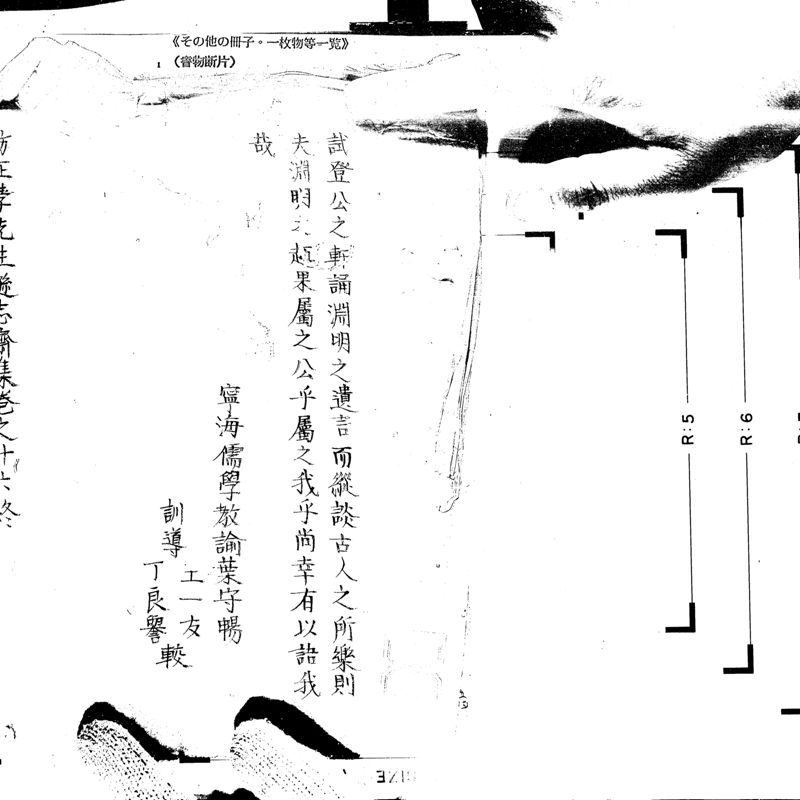 《その他の冊子。一枚物等一覧》
1 (書物断片)
試登公之軒誦淵明之遺言而縱談古人之所樂則
夫淵明之趣果屬之公乎屬之我乎尚幸有以語我
哉
寧海儒學教諭葉守暢
訓導
王一友
丁良譽
較
方正學先生遜志齋集卷之十六終
R:5
R:6